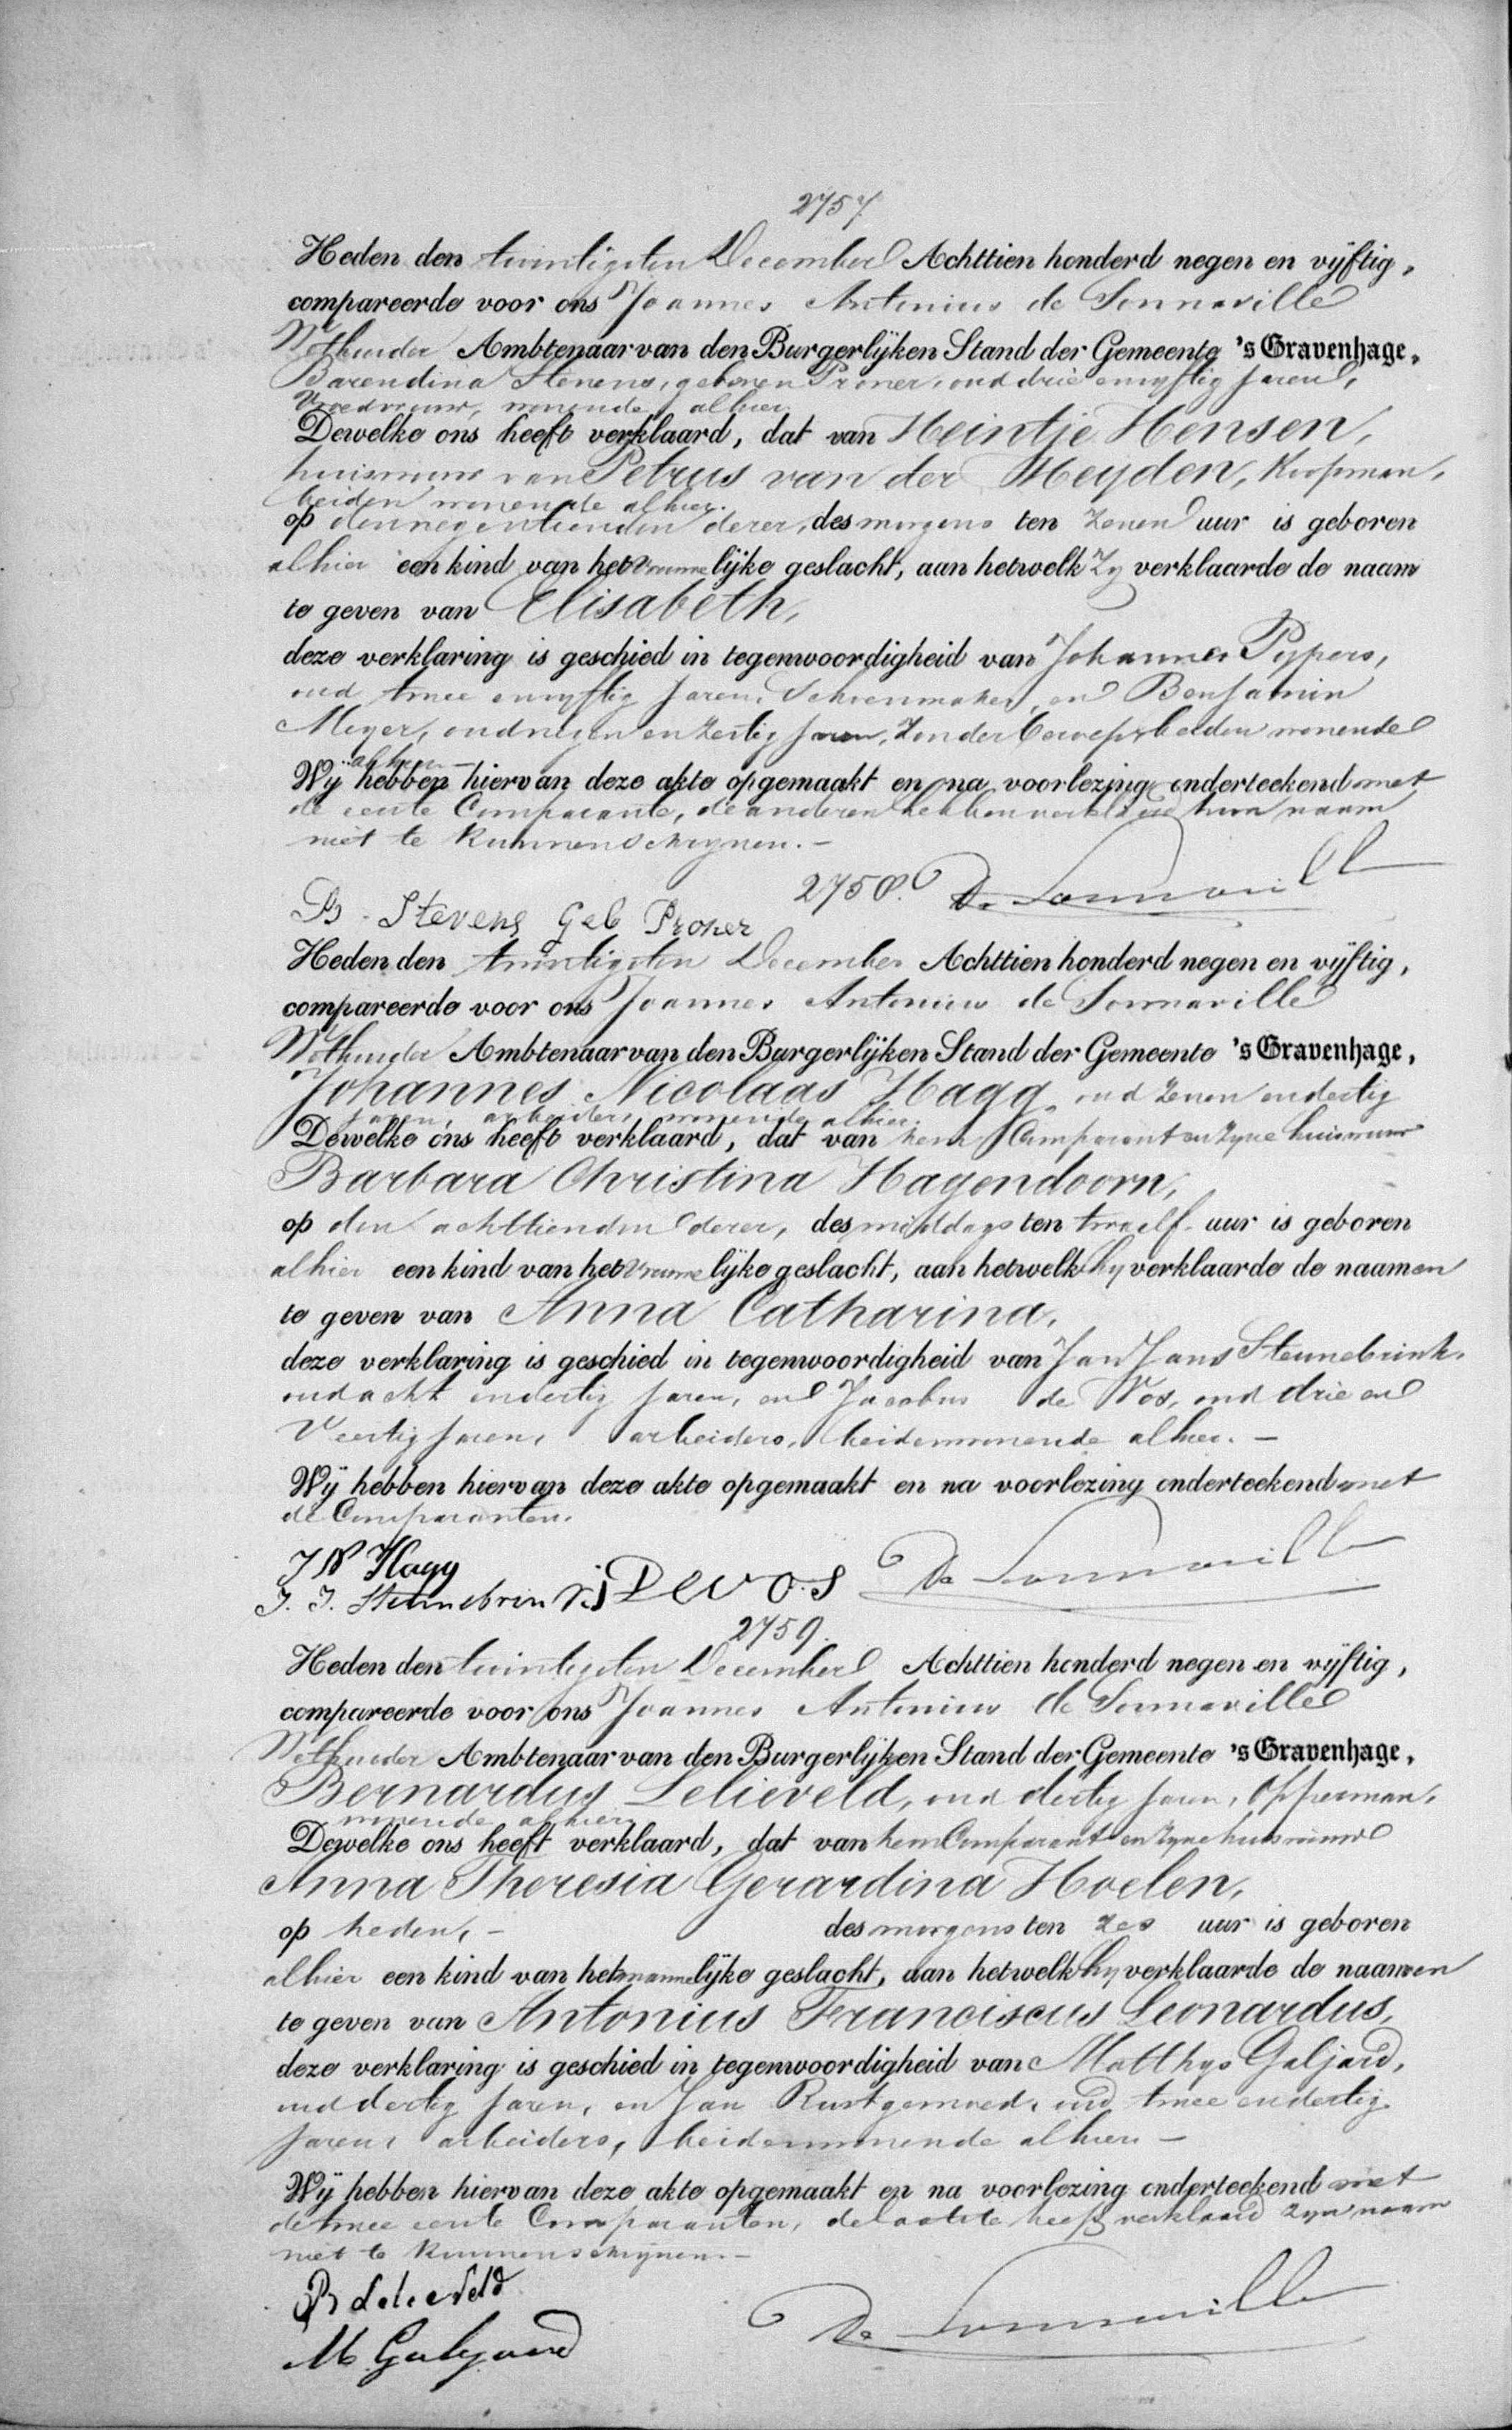 2757
Heden den twintigsten December Achttien honderd negen en vijftig,
compareerde voor ons Joannes Antonius de Sonnaville
Wethouder Ambtenaar van den Burgerlijken Stand der Gemeente 's Gravenhage,
Barendina Stevens, geboren Proner, oud drie en vyftig jaren,
Vroedvrouw, wonende alhier
Dewelke ons heeft verklaard, dat van Heintje Hensen,
huisvrouw van Petrus van der Heyden, Koopman,
beiden wonende alhier.
op den negentienden dezer, des morgens ten zeven uur is geboren
alhier een kind van het vrouwelijke geslacht, aan hetwelk Zy verklaarde de naam
te geven van Elisabeth,
deze verklaring is geschied in tegenwoordigheid van Johannes Pypers,
oud twee en vyftig jaren, Schoenmaker, en Benjamin
Meyer, oud negen en zestig jaren, Zonder beroep, beiden wonende
alhier. –
Wij hebben hiervan deze akte opgemaakt en na voorlezing onderteekend met
de eerste Comparante, de anderen hebben verklaard hun naam
niet te Kunnen schryven. –
2758. De Sonnaville
B. Stevens Geb Proner
Heden den twintigsten December Achttien honderd negen en vijftig,
compareerde voor ons Joannes Antonius de Sonnaville
Wethouder Ambtenaar van den Burgerlijken Stand der Gemeente 's Gravenhage,
Johannes Nicolaas Hagg, oud zeven en dertig
jaren, arbeider, wonende alhier.
Dewelke ons heeft verklaard, dat van hem Comparant en zyne huisvrouw
Barbara Christina Hagendoorn,
op den achttienden dezer, des middags ten twaalf uur is geboren
alhier een kind van het vrouwelijke geslacht, aan hetwelk hy verklaarde de naamen
te geven van Anna Catharina,
deze verklaring is geschied in tegenwoordigheid van Jan Jans Stennebrink,
oud acht en dertig jaren, en Jacobus de Vos, oud drie en
Veertig jaren, arbeiders, beiden wonende alhier. –
Wij hebben hiervan deze akte opgemaakt en na voorlezing onderteekend met
de Comparanten.
J N Hagg
J. J. Stennebrink J DE VOS De Sonnaville
2759.
Heden den twintigsten December Achttien honderd negen en vijftig,
compareerde voor ons Joannes Antonius de Sonnaville
Wethouder Ambtenaar van den Burgerlijken Stand der Gemeente 's Gravenhage,
Bernardus Lelieveld, oud dertig jaren, Opperman,
wonende alhier
Dewelke ons heeft verklaard, dat van hem Comparant en zyne huisvrouw
Anna Theresia Gerardina Hoelen,
op heden, – des morgens ten zes uur is geboren
alhier een kind van het mannelijke geslacht, aan hetwelk hy verklaarde de naamen
te geven van Antonius Franciscus Leonardus,
deze verklaring is geschied in tegenwoordigheid van Matthys Galjard,
oud dertig jaren, en Jan Rustgemoed, oud twee en dertig
jaren, arbeiders, beiden wonende alhier –
Wij hebben hiervan deze akte opgemaakt en na voorlezing onderteekend met
de twee eerste Comparanten, de laatste heeft verklaard zyn naam
niet te Kunnen schryven. –
B Lelieveld
M Galjaard De Sonnaville